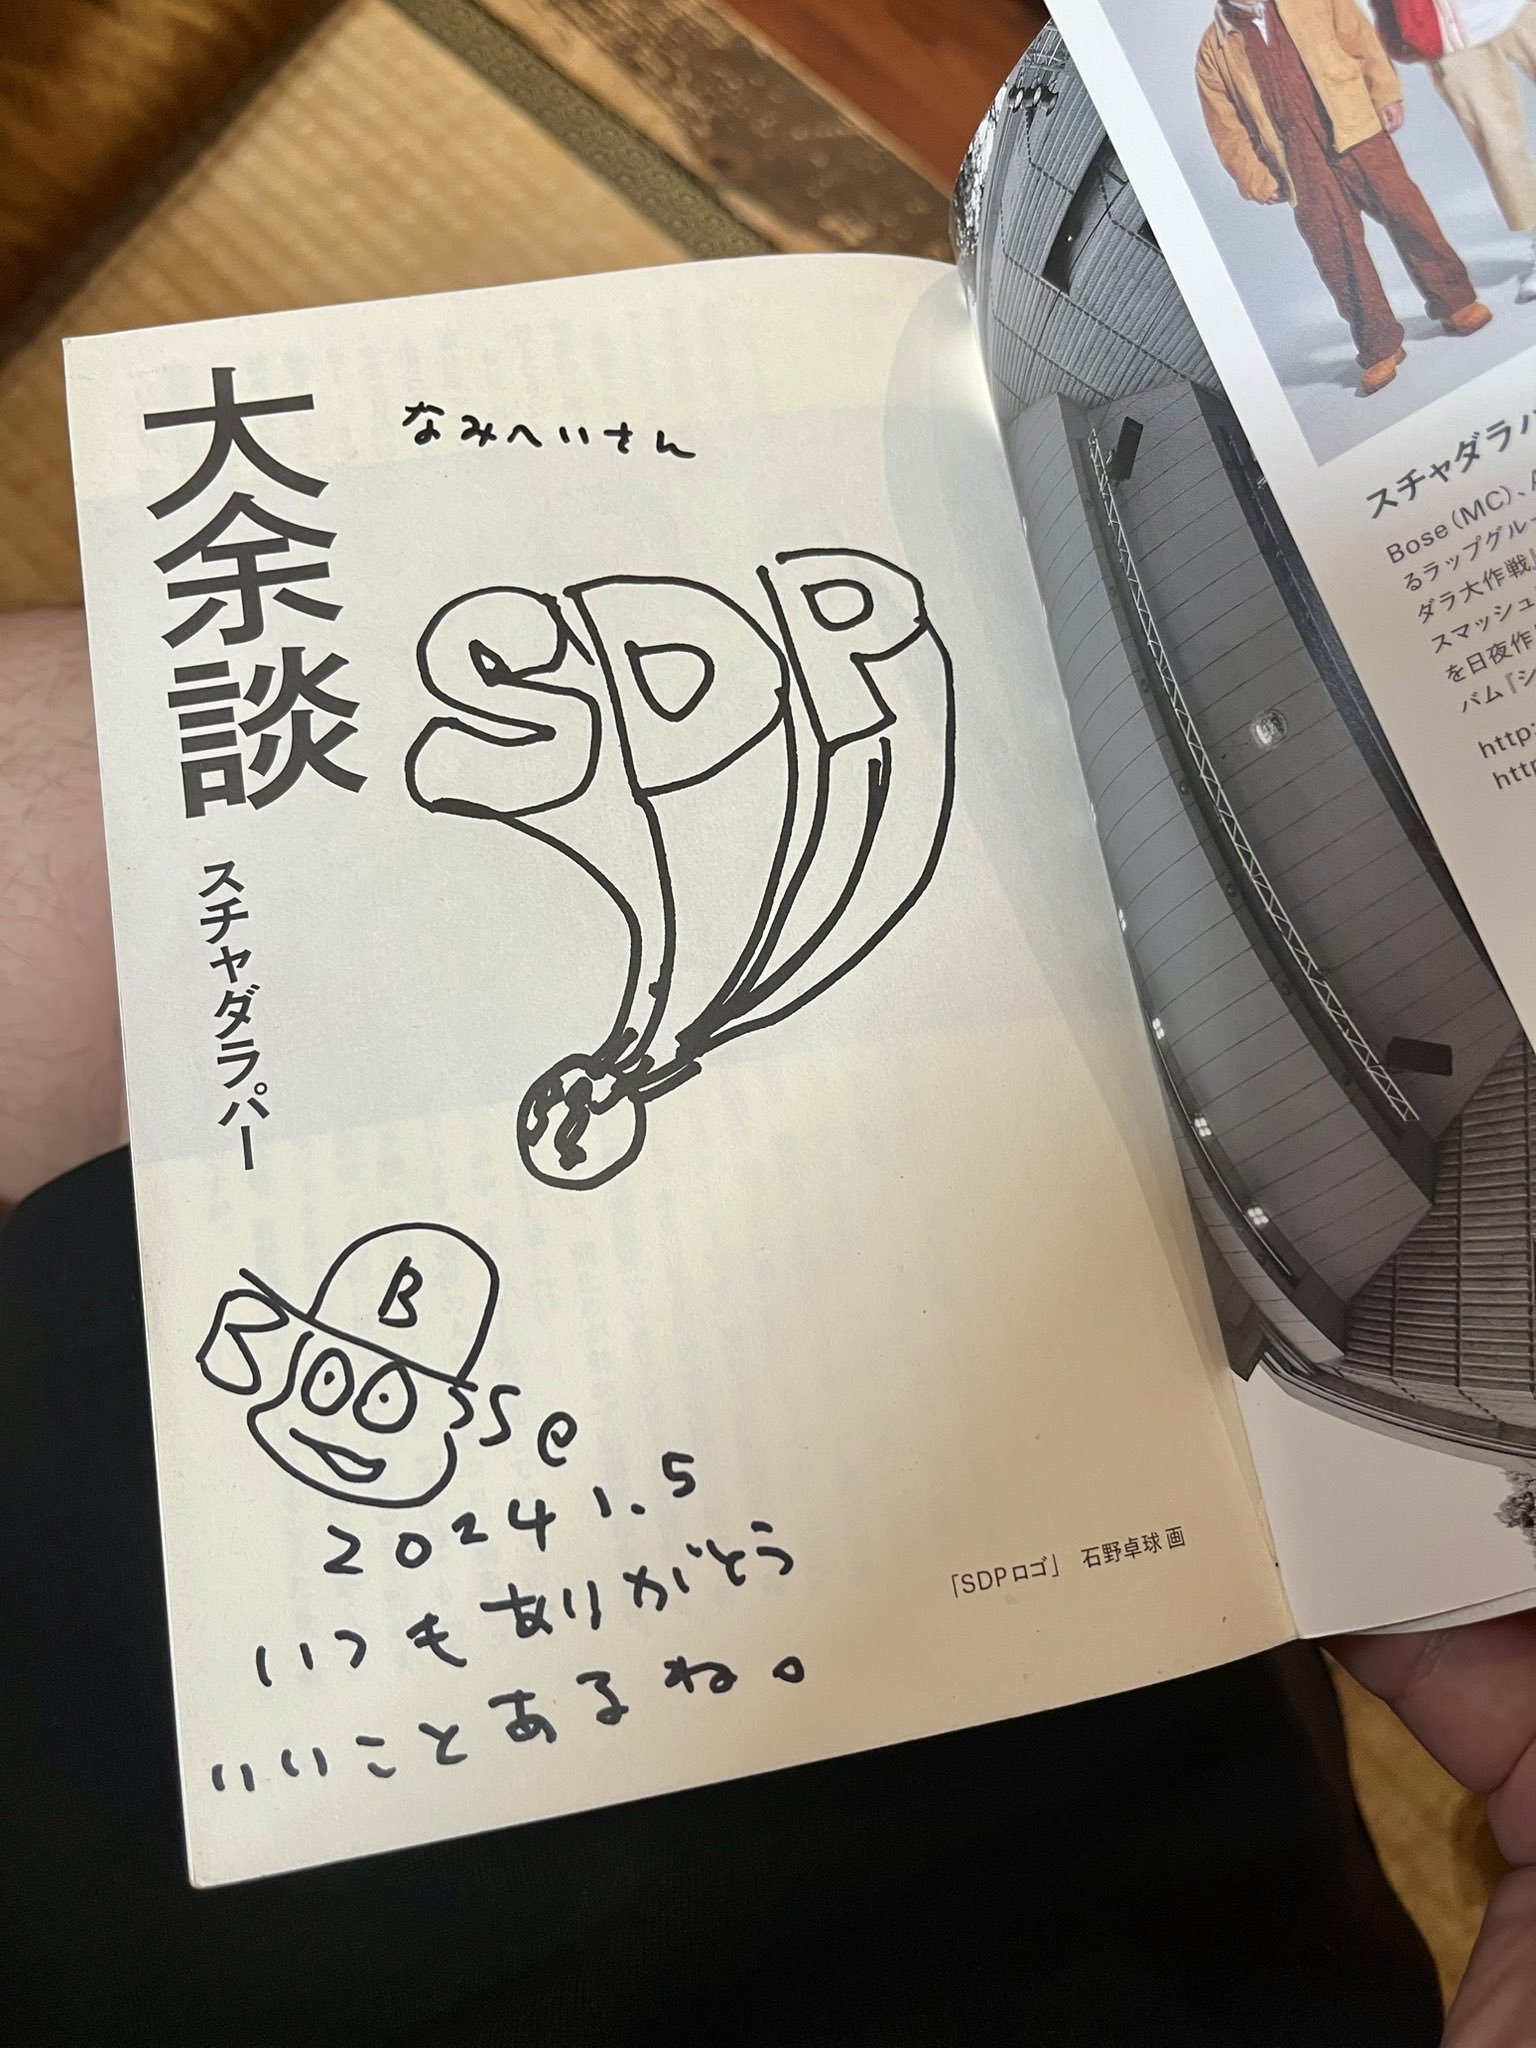 大余談
スチャダラパー
なみへいさん
SDP
B
Bose
2024 1.5
いつもありがとう
いいことあるね。
「SDPロゴ」 石野卓球 画
スチャダラパ
Bose(MC)、A
るラップグルー
ダラ大作戦』
スマッシュ
を日夜作
バム『シ
http:
http